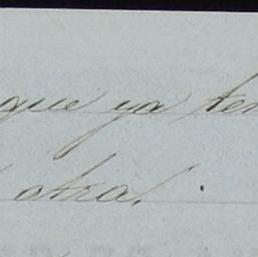 que ya ten
otra!